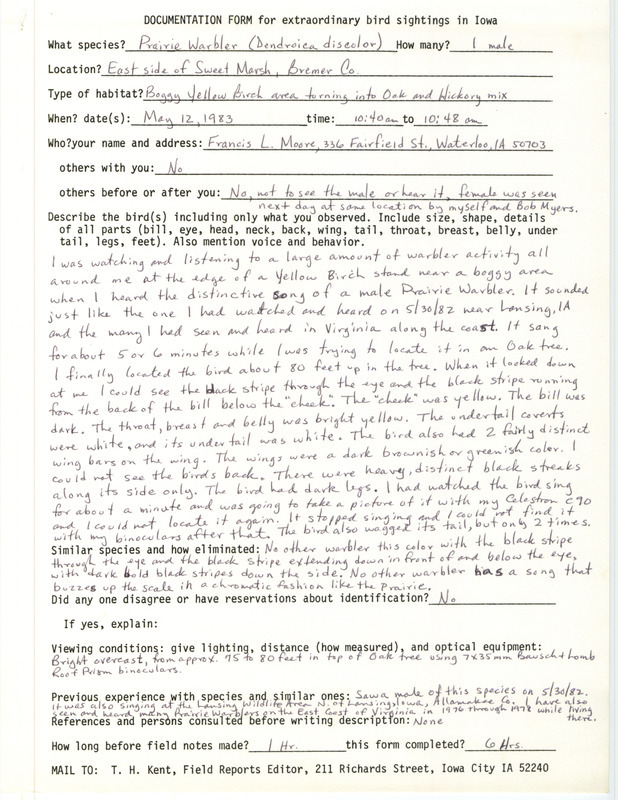 DOCUMENTATION FORM for extraordinary bird sightings in Iowa
What species? Prairie Warbler (Dendroica discolor) How many? 1 male
Location? East side of Sweet Marsh, Bremer Co.
Type of habitat? Boggy Yellow Birch area turning into Oak and Hickory mix
When? date(s): May 12, 1983 time: 10:40am to 10:48 am
Who?your name and address: Francis L. Moore, 336 Fairfield St., Waterloo, IA 50703
others with you: No
others before or after you: No, not to see the male or hear it, female was seen
next day at same location by myself and Bob Myers.
Describe the bird(s) including only what you observed. Include size, shape, details
of all parts (bill, eye, head, neck, back, wing, tail, throat, breast, belly, under
tail, legs, feet). Also mention voice and behavior.
I was watching and listening to a large amount of warbler activity all
around me at the edge of a Yellow Birch stand near a boggy area
when I heard the distinctive song of a male Prairie Warbler. It sounded
just like the one I had watched and heard on 5/30/82 near Lansing, IA
and the many I had seen and heard in Virginia along the coast. It sang
for about 5 or 6 minutes while I was trying to locate it in an Oak tree.
I finally located the bird about 80 feet up in the tree. When it looked down
at me I could see the black stripe through the eye and the black stripe running
from the back of the bill below the "cheek". The "cheek" was yellow. The bill was
dark. The throat, breast and belly was bright yellow. The undertail coverts
were white, and its undertail was white. The bird also had 2 fairly distinct
wing bars on the wing. The wings were a dark brownish or greenish color. I
could not see the birds back. There were heavy, distinct black streaks
along its side only. The bird had dark legs. I had watched the bird sing
for about a minute and was going to take a picture of it with my Celestron C90
and I could not locate it again. It stopped singing and I could not find it
with my binoculars after that. The bird also wagged its tail, but only 2 times.
Similar species and how eliminated: No other warbler this color with the black stripe
through the eye and the black stripe extending down in front of and below the eye,
with dark bold black stripes down the side. No other warbler has a song that
buzzes up the scale in a chromatic fashion like the Prairie.
Did any one disagree or have reservations about identification? No
If yes, explain:
Viewing conditions: give lighting, distance (how measured), and optical equipment:
Bright overcast, from approx. 75 to 80 feet in top of Oak tree using 7x35mm Bausch & Lomb
Roof Prism binoculars.
Previous experience with species and similar ones: Saw a male of this species on 5/30/82.
It was also singing at the Lansing Wildlife Area N. of Lansing, Iowa, Allamakee Co. I have also
seen and heard many Prairie Warblers on the East Coast of Virginia in 1976 through 1978 while living
there.
References and persons consulted before writing description: None
How long before field notes made? 1 Hr. this form completed? 6 Hrs.
MAIL TO: T. H. Kent, Field Reports Editor, 211 Richards Street, Iowa City IA 52240